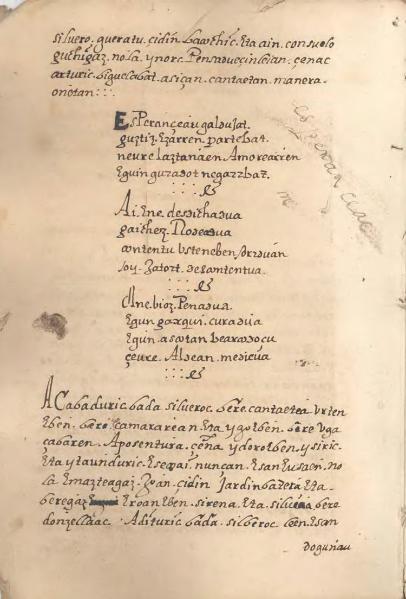 silvero. gueratu. çidin. baothic. Eta ain. consuelo
guthigaz. nola. ynorc. Pensaduçinleian. çenac
arturic. biguelabat. asiçan. cantaetan. manera.
onetan : : .
Esperançeau galdu jat.
guztiz. Ezarren. parte bat.
neure laztanaen. Amorearren
Eguin gura dot negarr bat.
Ai. Ene. desdichadua
gaithez. Nodeadua
contentu. usteneben,
Joy. Zatort.
Ene. bioz. Penadua.
Egun gaxqui. curadua
Egun. ascotan bearadoçu
çeure. Aldean. medicua
esperançeac
Acabaduric. bada silveroc. bere. cantaetea. urten
Eben. bero. camararean. Eta ygorben. bere uga
çabaren. Aposentura. çeña. ydoroeben. ysiric.
Eta ytaunduric. Esegai. nuncan. Esan eusten. no
la Emazteagaz. Joan. çidin Jardin batera Eta.
beregaz Eroan Eben. sirena. Eta. silvia bere
donzellaac. Adituric bada. silveroc been. Esan
dogunau